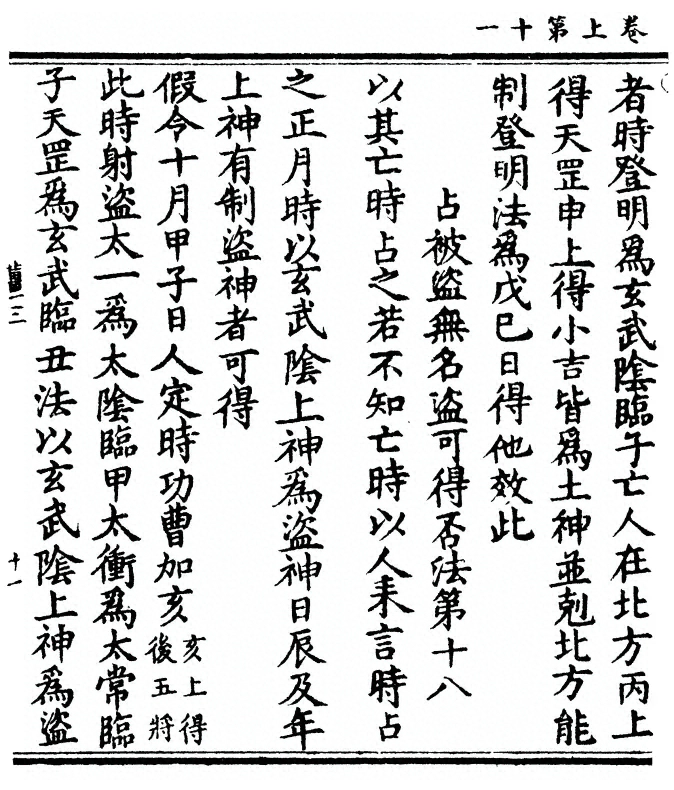 卷上第十一
者時登明爲玄武陰臨子亡人在北方丙上
得天罡申上得小吉皆爲土神並剋北方能
制登明法爲戊巳日得他效此
占被盜無名盜可得否法第十八
以其亡時占之若不知亡時以人来言時占
之正月時以玄武陰上神爲盜神日辰及年
上神有制盜神者可得
假令十月甲子日人定時功曹加亥亥上得後五將
此時射盜太一爲太陰臨甲太衝爲太常臨
子天罡爲玄武臨丑法以玄武陰上神爲盜
十一